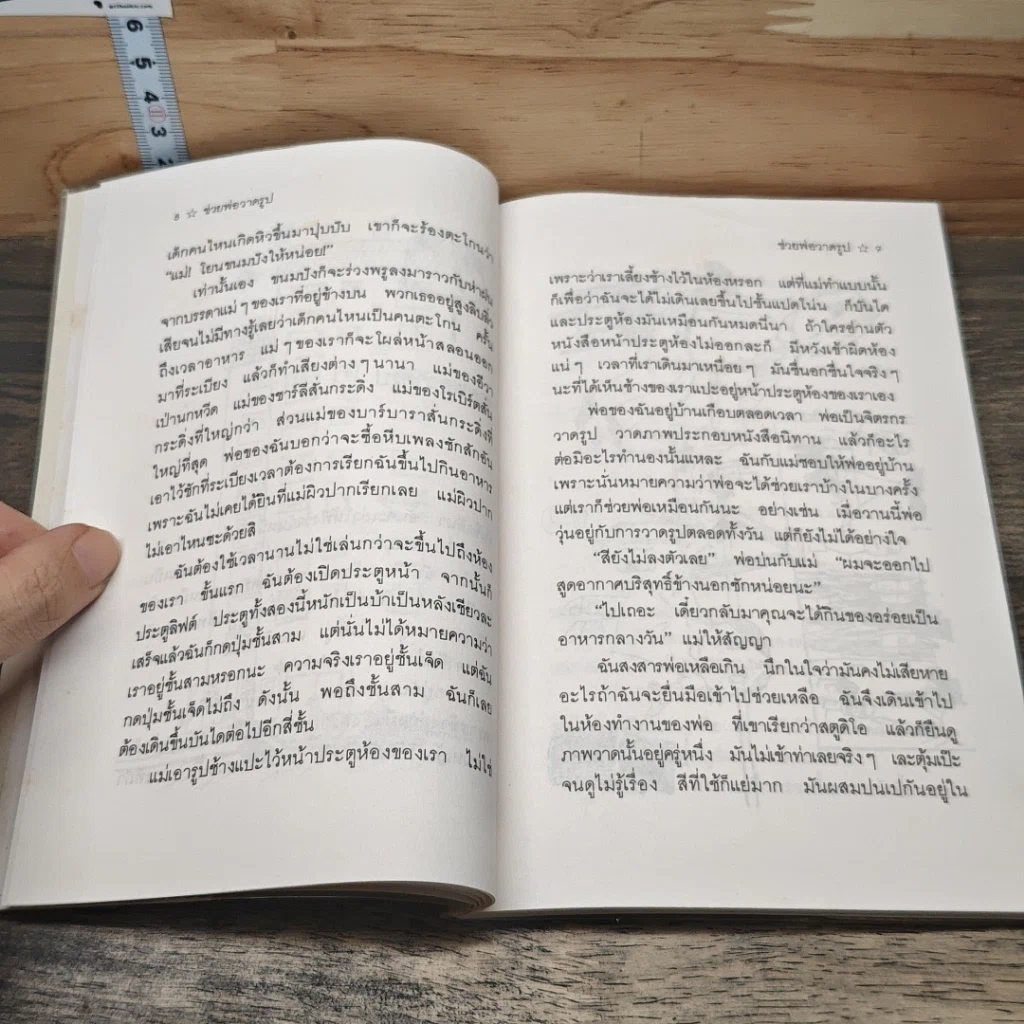 6
5
4
11
3
2
๘ ☆ ช่วยพ่อวาดรูป
เด็กคนไหนเกิดหิวขึ้นมาปุบปับ เขาก็จะร้องตะโกนว่า
"แม่! โยนขนมปังให้หน่อย!"
เท่านั้นเอง ขนมปังก็จะร่วงพรูลงมาราวกับห่าฝน
จากบรรดาแม่ๆ ของเราที่อยู่ข้างบน พวกเธออยู่สูงลิบลิ่ว
เสียจนไม่มีทางรู้เลยว่าเด็กคนไหนเป็นคนตะโกน ครั้น
ถึงเวลาอาหาร แม่ๆ ของเราก็จะโผล่หน้าสลอนออก
มาที่ระเบียง แล้วก็ทำเสียงต่างๆ นานา แม่ของอีวา
เป่านกหวีด แม่ของชาร์ลีสั่นกระดิ่ง แม่ของโรเบิร์ตสั่น
กระดิ่งที่ใหญ่กว่า ส่วนแม่ของบาร์บาราสั่นกระดิ่งที่
ใหญ่ที่สุด พ่อของฉันบอกว่าจะซื้อหีบเพลงชักสักอัน
เอาไว้ชักที่ระเบียงเวลาต้องการเรียกฉันขึ้นไปกินอาหาร
เพราะฉันไม่เคยได้ยินที่แม่ผิวปากเรียกเลย แม่ผิวปาก
ไม่เอาไหนซะด้วยสิ
ฉันต้องใช้เวลานานไม่ใช่เล่นกว่าจะขึ้นไปถึงห้อง
ของเรา ขั้นแรก ฉันต้องเปิดประตูหน้า จากนั้นก็
ประตูลิฟต์ ประตูทั้งสองนี้หนักเป็นบ้าเป็นหลังเชียวละ
เสร็จแล้วฉันก็กดปุ่มชั้นสาม แต่นั่นไม่ได้หมายความว่า
เราอยู่ชั้นสามหรอกนะ ความจริงเราอยู่ชั้นเจ็ด แต่ฉัน
กดปุ่มชั้นเจ็ดไม่ถึง ดังนั้น พอถึงชั้นสาม ฉันก็เลย
ต้องเดินขึ้นบันไดต่อไปอีกสี่ชั้น
แม่เอารูปช้างแปะไว้หน้าประตูห้องของเรา ไม่ใช่
ช่วยพ่อวาดรูป ☆ ๙
เพราะว่าเราเลี้ยงช้างไว้ในห้องหรอก แต่ที่แม่ทำแบบนั้น
ก็เพื่อว่าฉันจะได้ไม่เดินเลยขึ้นไปชั้นแปดโน่น ก็บันได
และประตูห้องมันเหมือนกันหมดนี่นา ถ้าใครอ่านตัว
หนังสือหน้าประตูห้องไม่ออกละก็ มีหวังเข้าผิดห้อง
แน่ๆ เวลาที่เราเดินมาเหนื่อยๆ มันชื่นอกชื่นใจจริงๆ
นะที่ได้เห็นช้างของเราแปะอยู่หน้าประตูห้องของเราเอง
พ่อของฉันอยู่บ้านเกือบตลอดเวลา พ่อเป็นจิตรกร
วาดรูป วาดภาพประกอบหนังสือนิทาน แล้วก็อะไร
ต่อมิอะไรทำนองนั้นแหละ ฉันกับแม่ชอบให้พ่ออยู่บ้าน
เพราะนั่นหมายความว่าพ่อจะได้ช่วยเราบ้างในบางครั้ง
แต่เราก็ช่วยพ่อเหมือนกันนะ อย่างเช่น เมื่อวานนี้พ่อ
วุ่นอยู่กับการวาดรูปตลอดทั้งวัน แต่ก็ยังไม่ได้อย่างใจ
"สียังไม่ลงตัวเลย" พ่อบ่นกับแม่ "ผมจะออกไป
สูดอากาศบริสุทธิ์ข้างนอกซักหน่อยนะ"
"ไปเถอะ เดี๋ยวกลับมาคุณจะได้กินของอร่อยเป็น
อาหารกลางวัน" แม่ให้สัญญา
ฉันสงสารพ่อเหลือเกิน นึกในใจว่ามันคงไม่เสียหาย
อะไรถ้าฉันจะยื่นมือเข้าไปช่วยเหลือ ฉันจึงเดินเข้าไป
ในห้องทำงานของพ่อ ที่เขาเรียกว่าสตูดิโอ แล้วก็ยืนดู
ภาพวาดนั้นอยู่ครู่หนึ่ง มันไม่เข้าท่าเลยจริงๆ เละตุ้มเป๊ะ
จนดูไม่รู้เรื่อง สีที่ใช้ก็แย่มาก มันผสมปนเปกันอยู่ใน